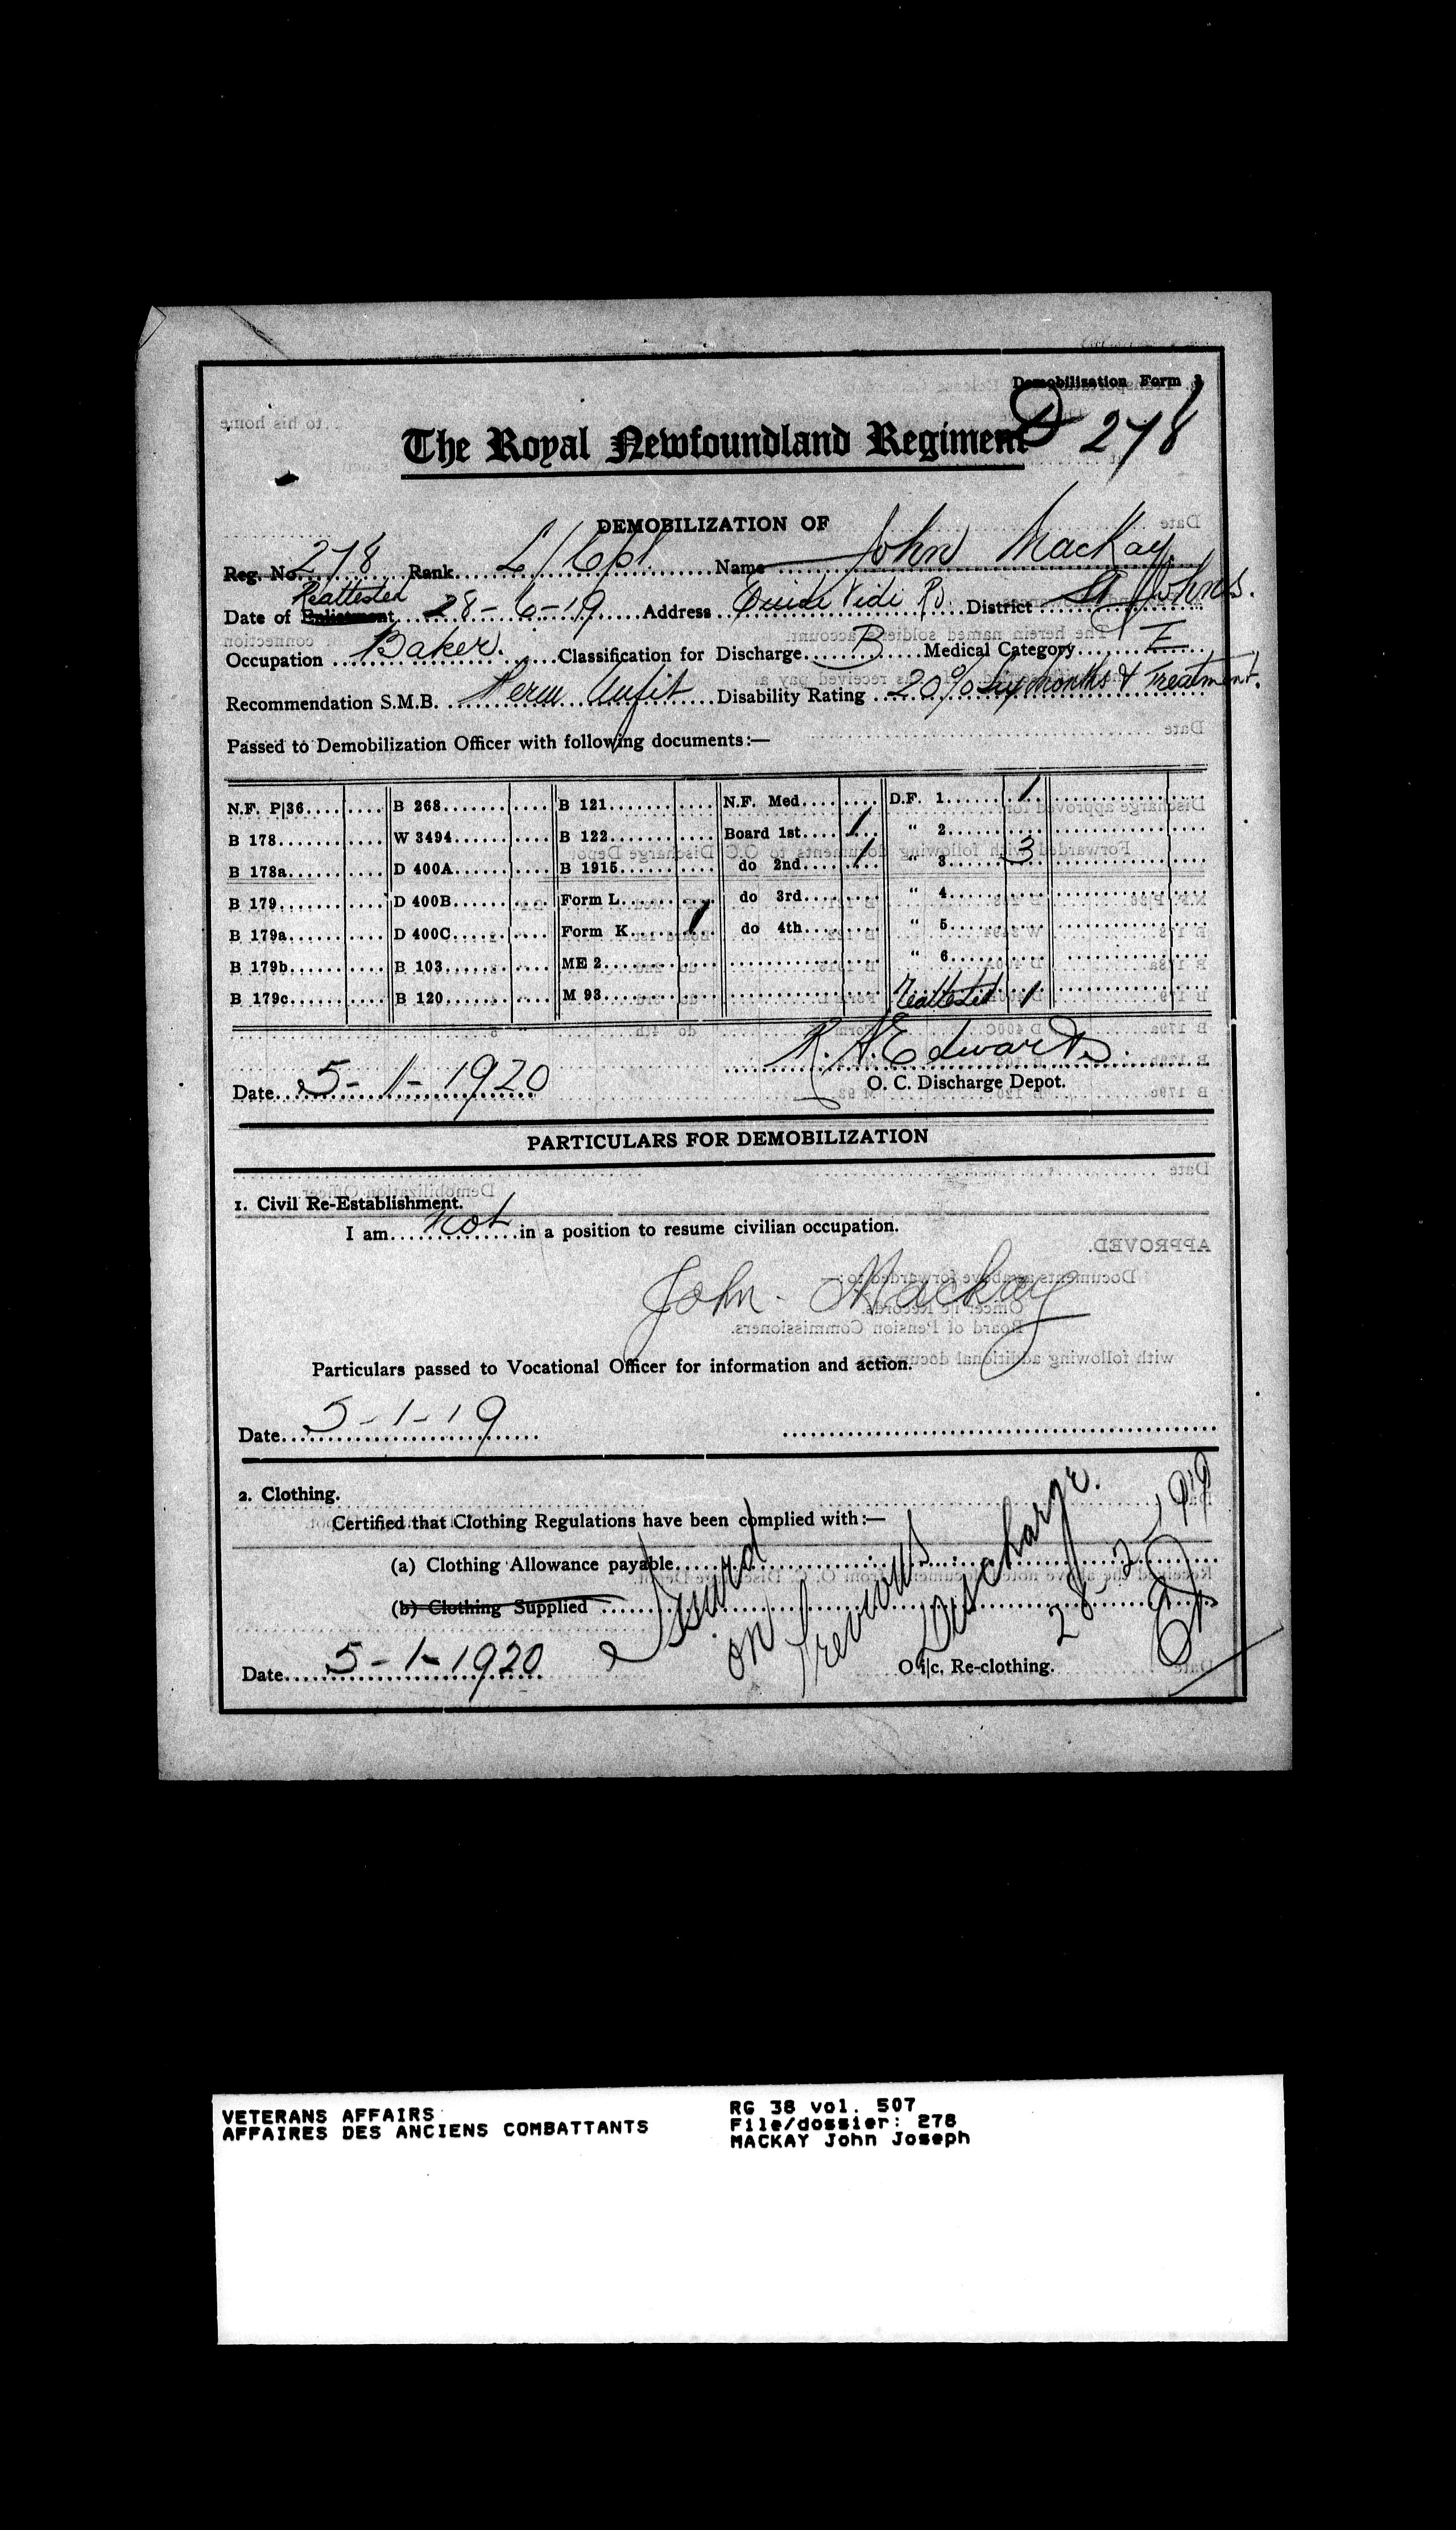 Demobilization Form 3
D 278
The Royal Newfoundland Regiment
DEMOBILIZATION OF
Reg. No. 278 Rank L/Cpl. Name John Mackay.
Reattested
Date of Enlistment 28-6-19 Address Quidi Vidi Rd. District St Johns.
Occupation Baker. Classification for Discharge B Medical Category E
Recommendation S.M.B. Perm Unfit Disability Rating 20% six months & Treatment.
Passed to Demobilization Officer with following documents:—
N.F. P|36 B 268 B 121 N.F. Med. D.F. 1 1
B 178 W 3494 B 122 Board 1st 1 " 2
B 178a D 400A B 1915 do 2nd 1 " 3 3
B 179 D 400B Form L do 3rd " 4
B 179a D 400C Form K 1 do 4th " 5
B 179b B 103 ME 2 " 6
B 179c B 120 M 93 Reattested 1
Date 5-1-1920 R. H. Edwards.
O. C. Discharge Depot.
PARTICULARS FOR DEMOBILIZATION
1. Civil Re-Establishment.
I am not in a position to resume civilian occupation.
John Mackay
Particulars passed to Vocational Officer for information and action.
Date 5-1-19
2. Clothing.
Certified that Clothing Regulations have been complied with:—
(a) Clothing Allowance payable
(b) Clothing Supplied
Issued on Previous Discharge. 28-2-1919
Date 5-1-1920 O i|c. Re-clothing.
VETERANS AFFAIRS RG 38 vol. 507
AFFAIRES DES ANCIENS COMBATTANTS File/dossier: 278
MACKAY John Joseph